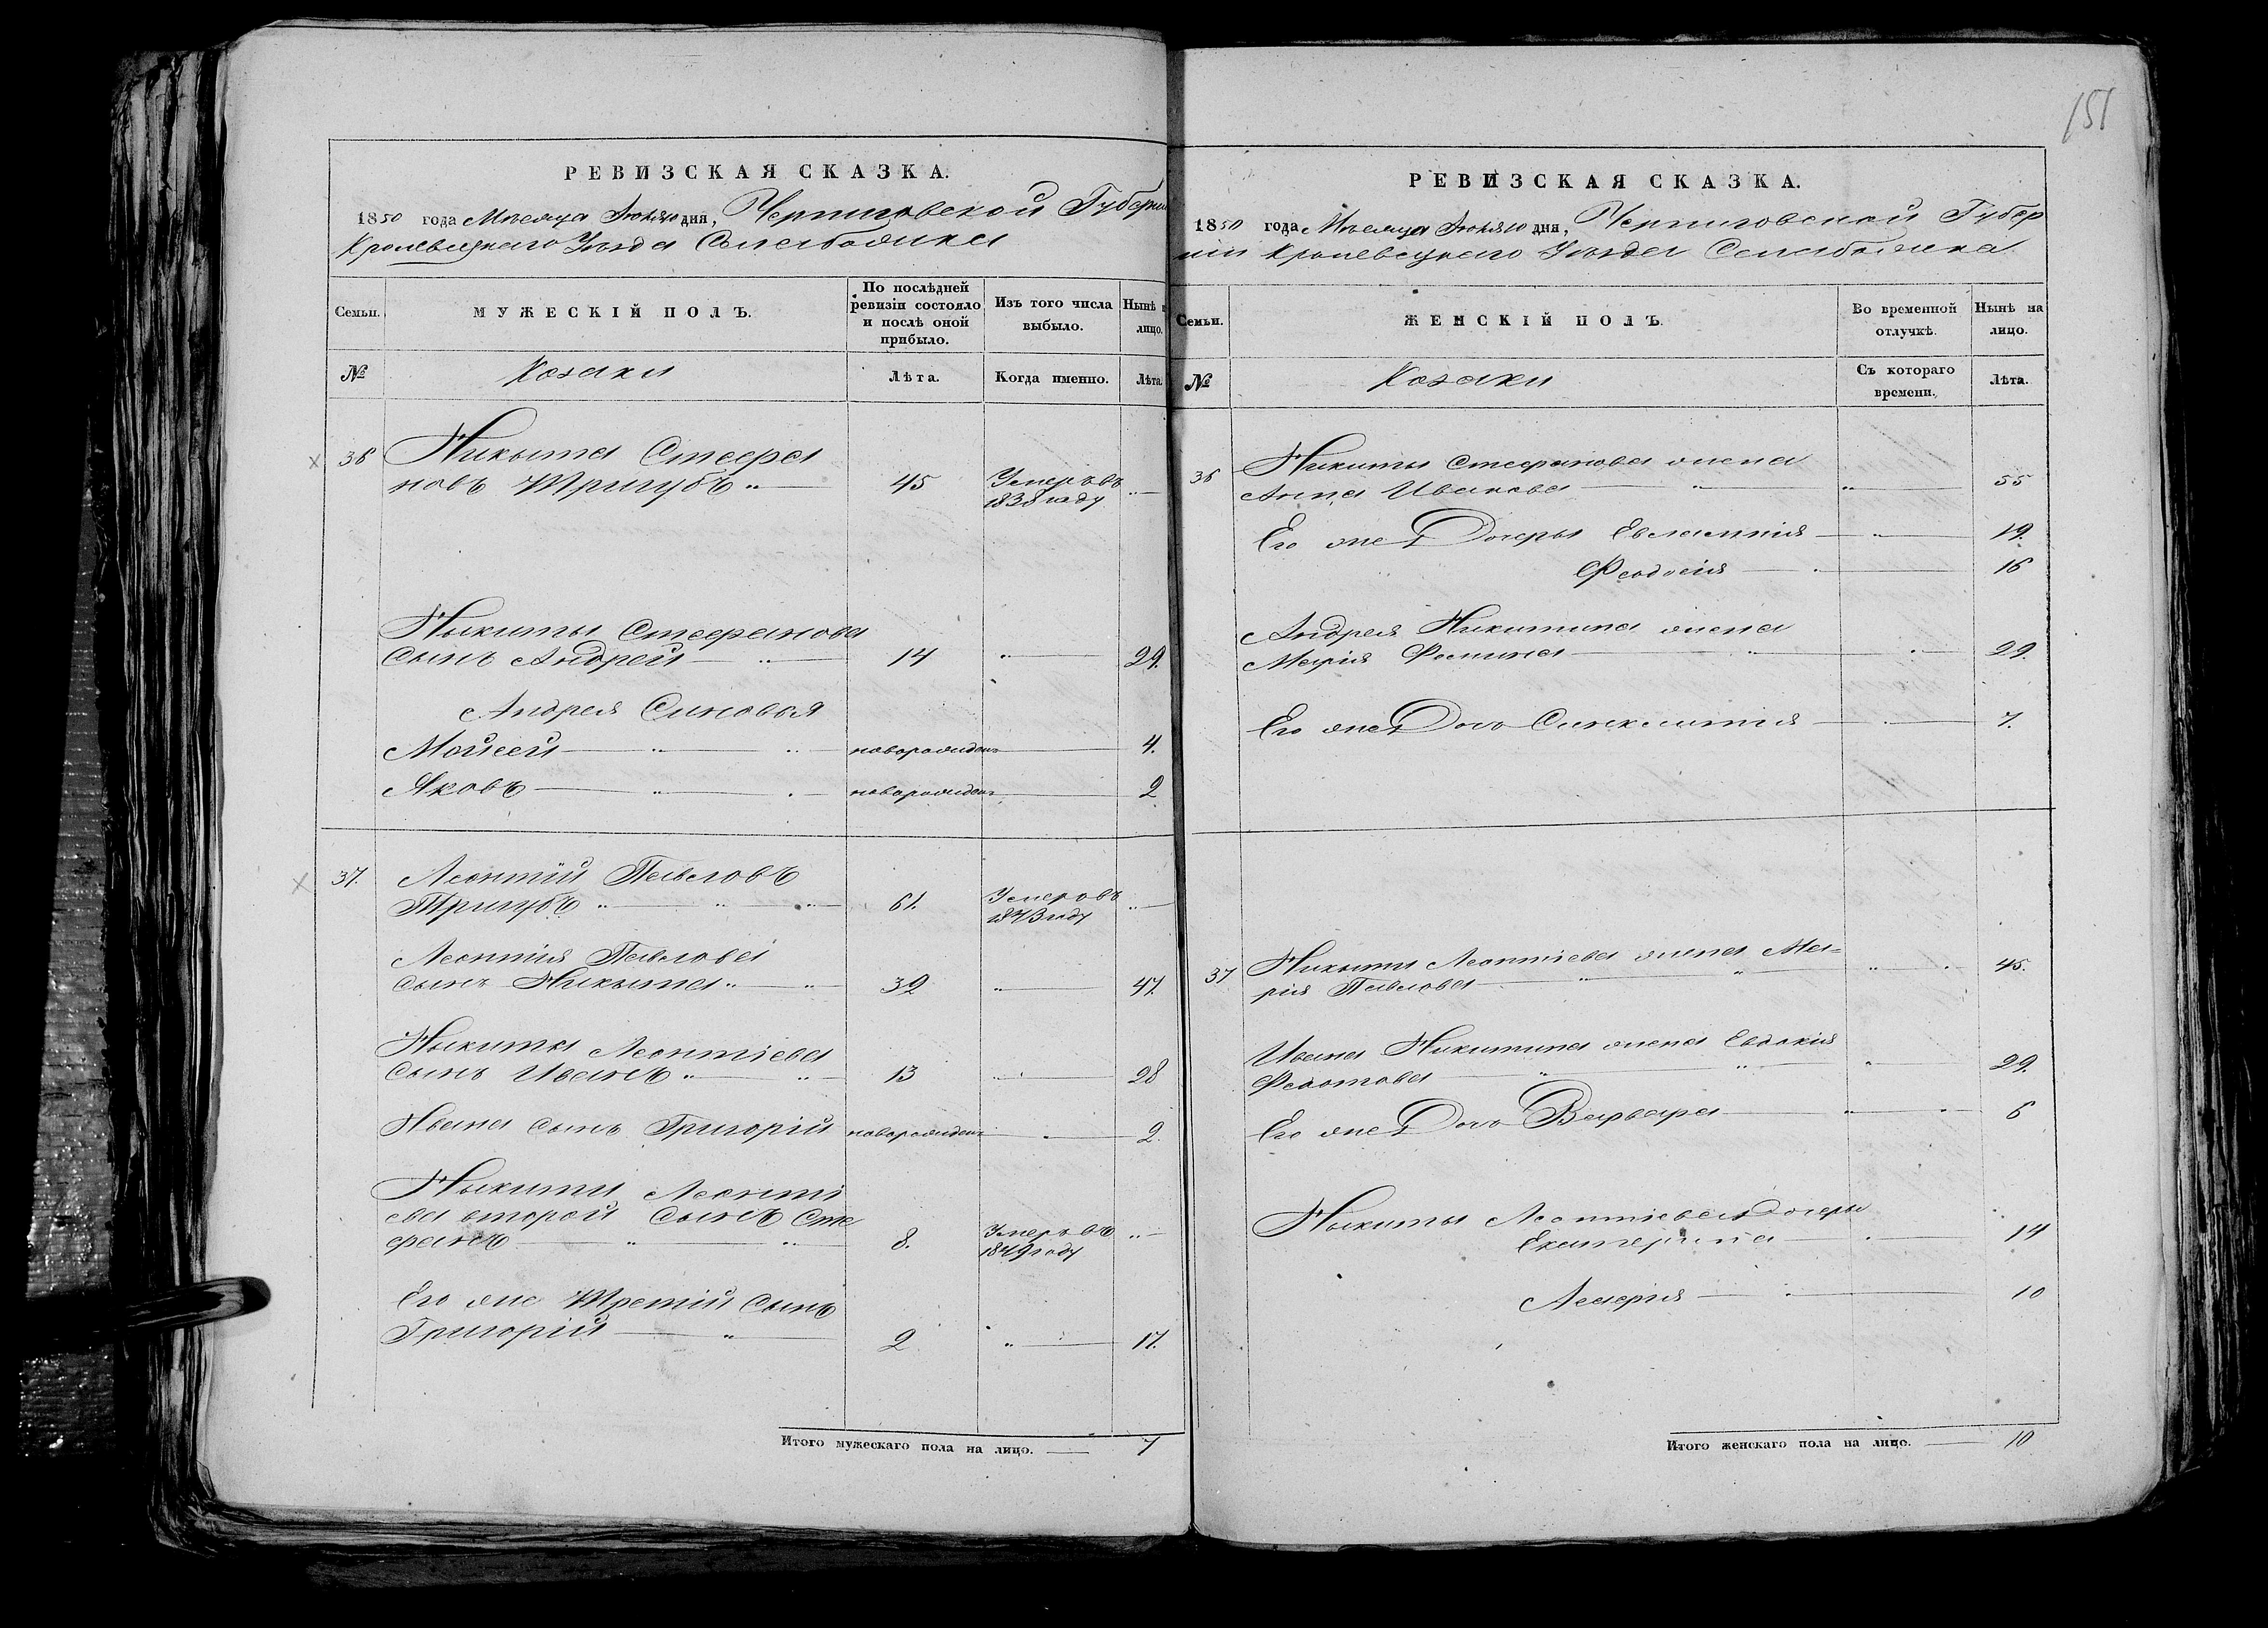 151
РЕВИЗСКАЯ СКАЗКА.
1850 года Месяца дня, Черниговской Губерніи
Кролевецкаго Уезда Села
Семьи.
МУЖЕСКІЙ ПОЛЪ.
По послѣдней ревизіи состояло и послѣ оной прибыло.
Изъ того числа выбыло.
Нынѣ на лицо.
№
Козаки
Лѣта.
Когда именно.
Лѣта.
36 Никита Стефа
новъ Тригубъ 45 Умеръ въ 1838 году
Никиты Стефанова
Сынъ Андрей 14 29.
Андрея Сыновья
Мойсей новорожден 4.
Яковъ новорожден 2
37. Леонтій Павловъ
Тригубъ 61. Умеръ въ 1843 году
Леонтія Павлова
сынъ Никита 32 47.
Никиты Леонтіева
Сынъ Иванъ 13 28
Ивана сынъ Григорій новорожден 2.
Никиты Леонті
ева второй Сынъ Сте
фанъ 8. Умеръ въ 1849 году
Его же Третій Сынъ
Григорій 2 17.
Итого мужескаго пола на лицо. 7
РЕВИЗСКАЯ СКАЗКА.
1850 года Месяца дня, Черниговской Губер
ніи Кролевецкаго Уезда Села
Семьи.
ЖЕНСКІЙ ПОЛЪ.
Во временной отлучкѣ.
Нынѣ на лицо.
№
Козаки
Съ котораго времени.
Лѣта.
36 Никиты Стефанова жена
Анна Иванова 55
Его же Дочеры Евлампія 19.
Феодосія 16
Андрея Никитина жена
Марія Фомина 29.
Его же Дочь Синклитія 7.
37 Никиты Леонтіева жена Ма-
рія Павлова 45.
Ивана Никитина жена Евдокія
Федотова 29.
Его же Дочь Варвара 6
Никиты Леонтіева дочеры
Екатерина 14
10
Итого женскаго пола на лицо. 10